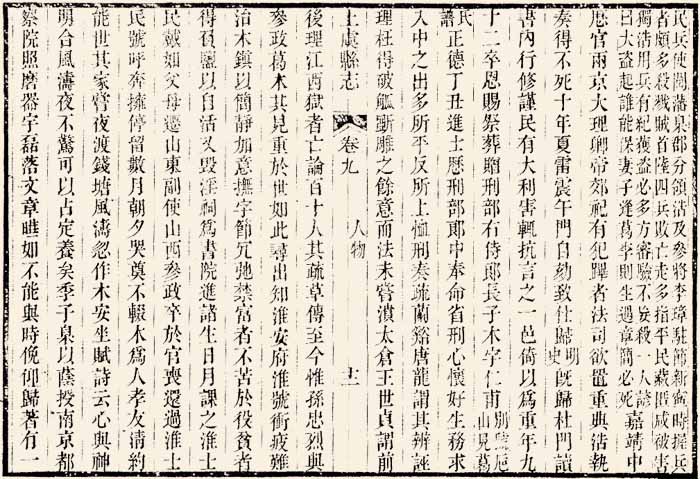 民兵使閩藩臬部分領浩及參將李璋駐簡新衛時提兵
者頗多殺戮賊首陸四兵敗亡走多指平民藏匿咸被害
獨浩用兵有紀獲盜必多方審驗不妄殺一人諺
曰大盜起誰能保妻子逢葛李則生遇章簡必死嘉靖中
官兩京大理卿帝郊祀有犯蹕者法司欲置重典浩執
奏得不死十年夏雷震午門自劾致仕歸明史既歸杜門讀
書內行修謹民有大利害輒抗言之一邑倚以為重年九
十二卒恩賜祭葬贈刑部右侍郎長子木字仁甫別號卮山見葛
氏譜正德丁丑進士歷刑部郎中奉命省刑心懷好生務求
入中之出多所平反所上恤刑奏疏蘭谿唐龍謂其辨誣
理枉得破觚斲雕之餘意而法未嘗潰太倉王世貞謂前
上虞縣志 卷九 人物 十二
後理江西獄者亡論百十人其疏草傳至今惟孫忠烈與
參政葛木其見重於世如此尋出知淮安府淮號衝疲難
治木鎮以簡靜加意撫字節冗弛禁富者不苦於役貧者
得負鹽以自活又毀淫祠為書院進諸生日月課之淮士
民戴如父母遷山東副使山西參政卒於官喪還過淮士
民號呼奔擁停留數月朝夕哭奠不輟木為人孝友清約
能世其家嘗夜渡錢塘風濤忽作木安坐賦詩云心與神
明合風濤夜不驚可以占定養矣季子臬以蔭授南京都
察院照磨器宇磊落文章瞧如不能與時俛仰歸著有一